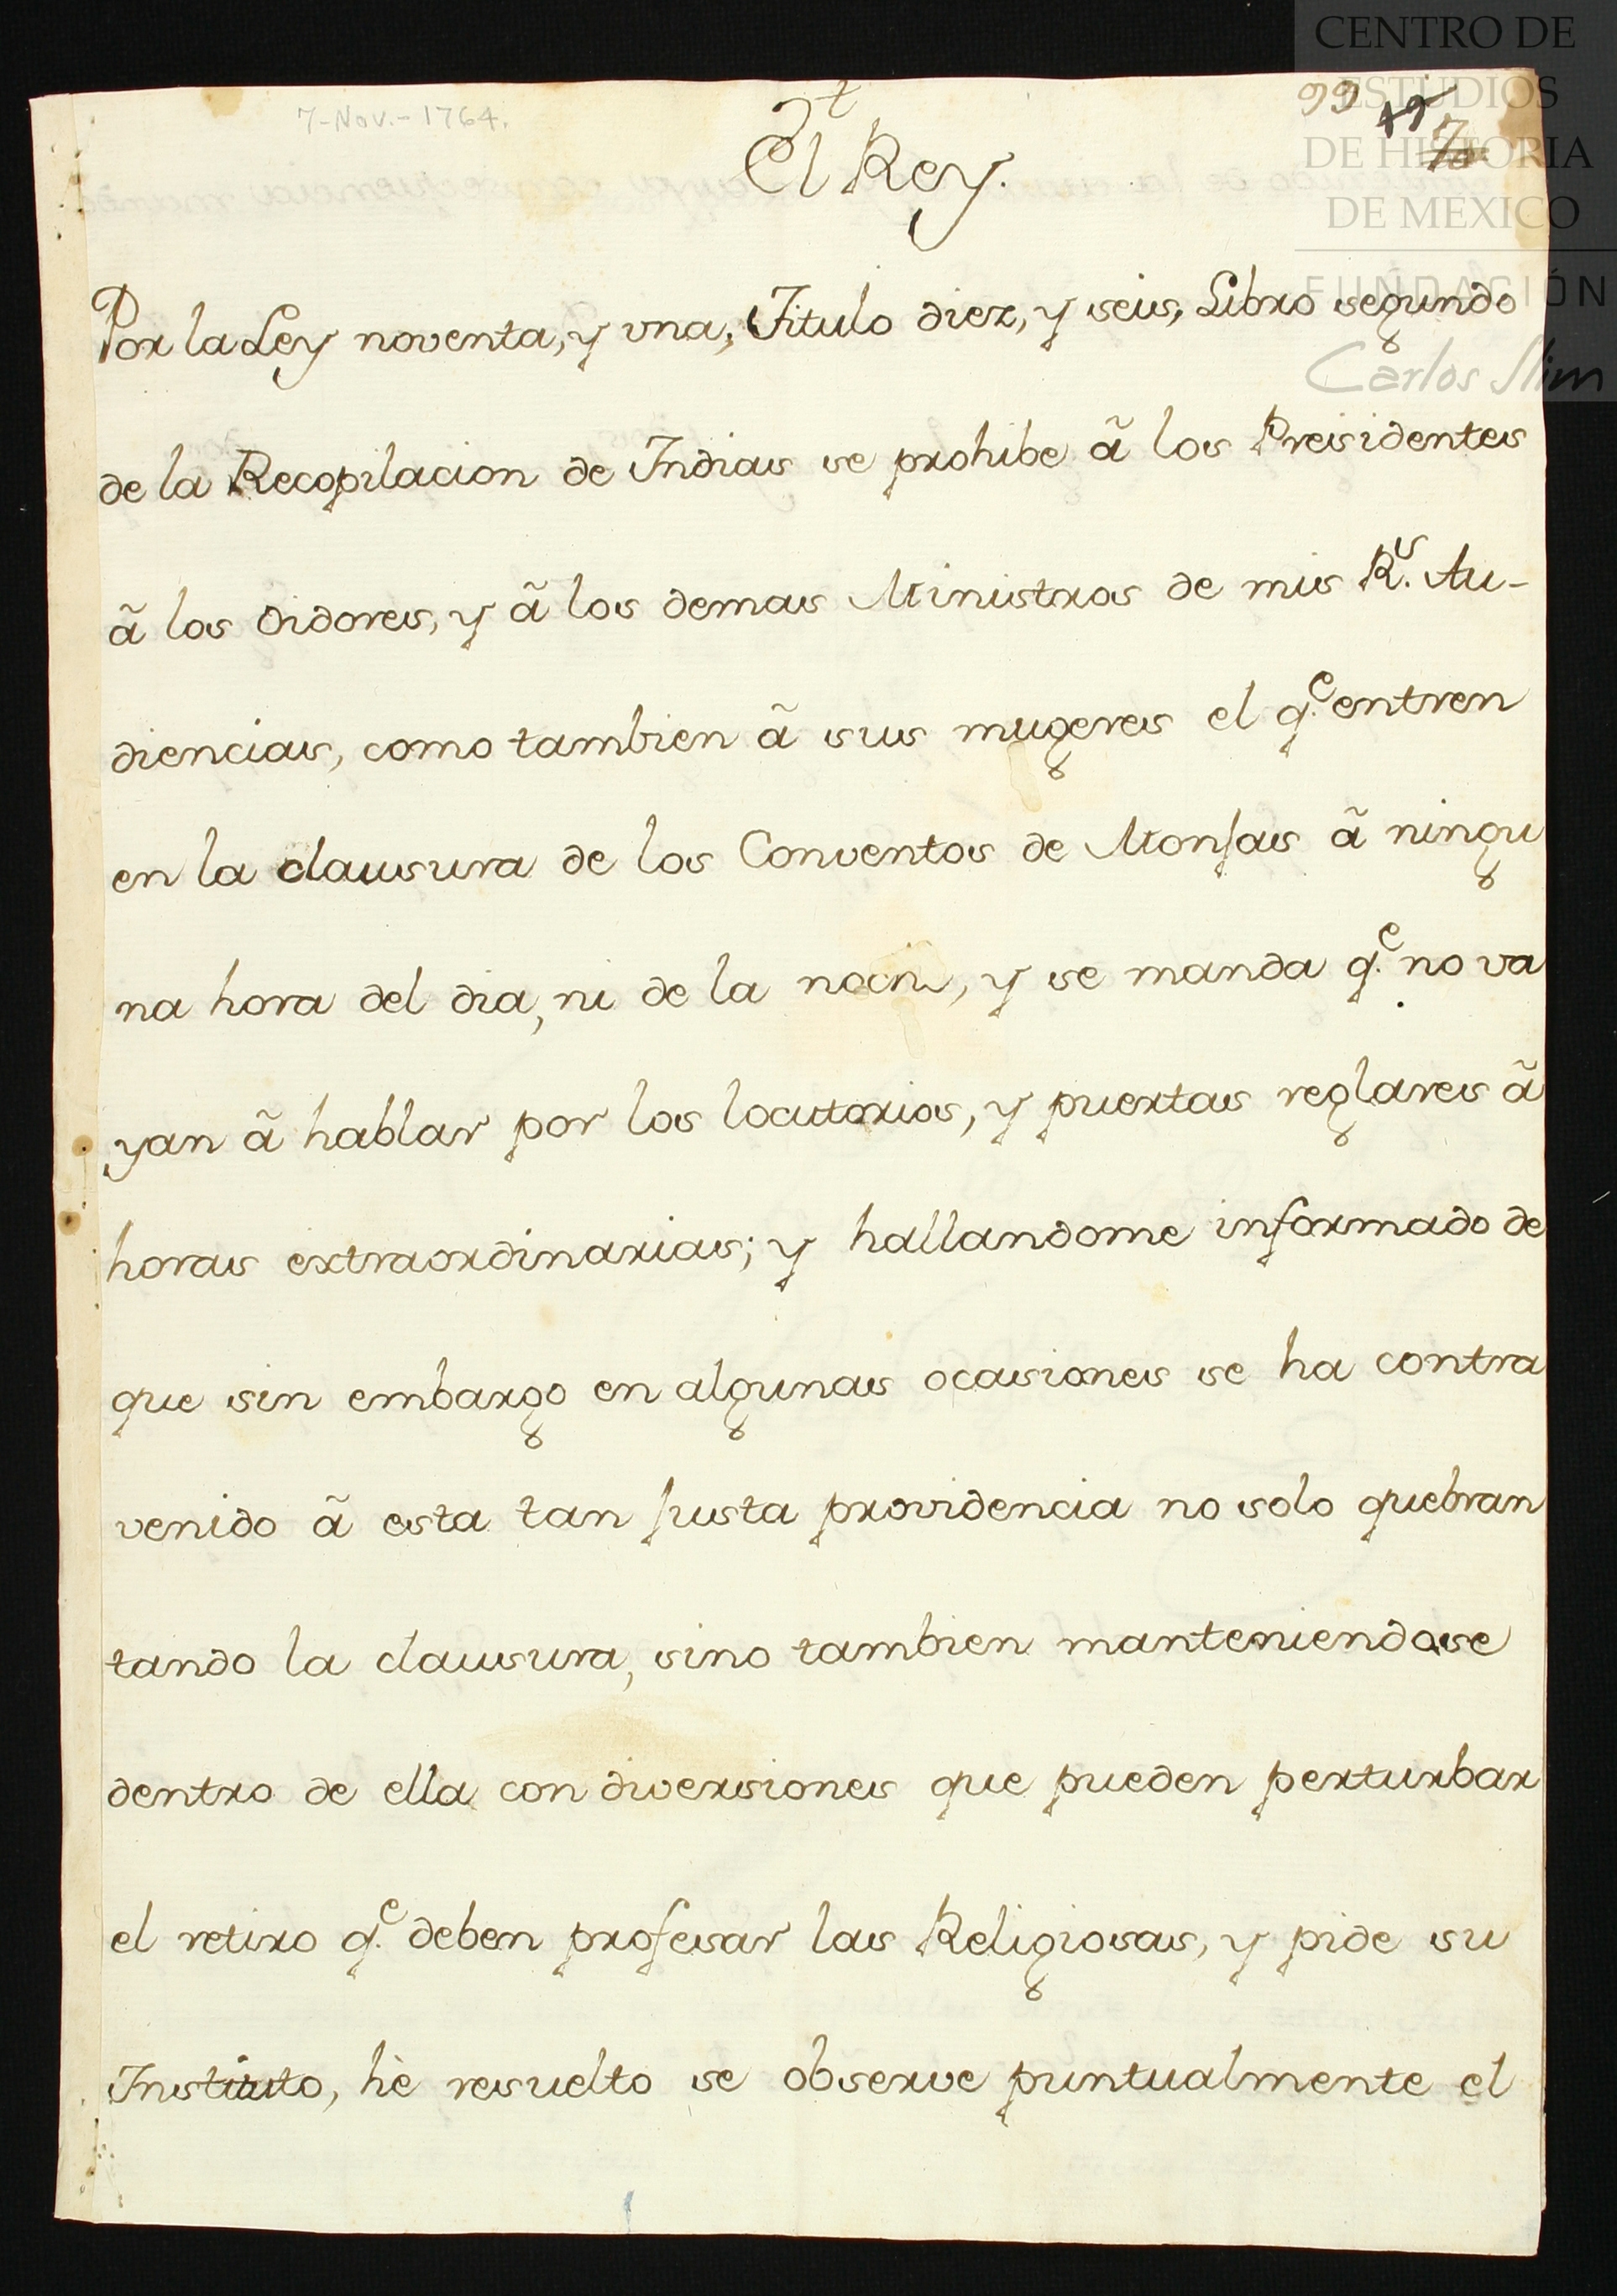 7-Nov.-1764.
99
49
70
CENTRO DE
ESTUDIOS
DE HISTORIA
DE MEXICO
FUNDACIÓN
Carlos Slim
El Rey.
Por la Ley noventa, y vna, Titulo diez, y seis, Libro segundo
de la Recopilacion de Indias se prohibe ã los Presidentes
ã los Oidores, y ã los demas Ministros de mis Rs. Au-
diencias, como tambien ã sus mugeres el qe. entren
en la clausura de los Conventos de Monjas ã ningu
na hora del dia, ni de la noche, y se manda qe. no va
yan ã hablar por los locutorios, y puertas reglares ã
horas extraordinarias; y hallandome informado de
que sin embargo en algunas ocasiones se ha contra
venido ã esta tan justa providencia no solo quebran
tando la clausura, sino tambien manteniendose
dentro de ella con diversiones que pueden perturbar
el retiro qe. deben profesar las Religiosas, y pide su
Instituto, hè resuelto se observe puntualmente el